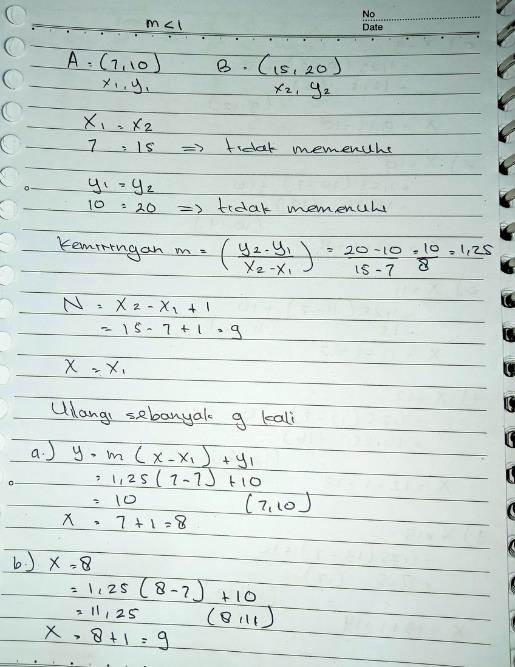 No
Date
m < 1
A = (7,10) B = (15, 20)
x₁, y₁ x₂, y₂
x₁ = x₂
7 = 15 => tidak memenuhi
y₁ = y₂
10 = 20 => tidak memenuhi
Kemiringan m = (y₂ - y₁ / x₂ - x₁) = 20 - 10 / 15 - 7 = 10 / 8 = 1,25
N = x₂ - x₁ + 1
= 15 - 7 + 1 = 9
x = x₁
Ulangi sebanyak 9 kali
a.) y = m (x - x₁) + y₁
= 1,25 (7 - 7) + 10
= 10 (7,10)
x = 7 + 1 = 8
b.) x = 8
= 1,25 (8 - 7) + 10
= 11,25 (8,11)
x = 8 + 1 = 9